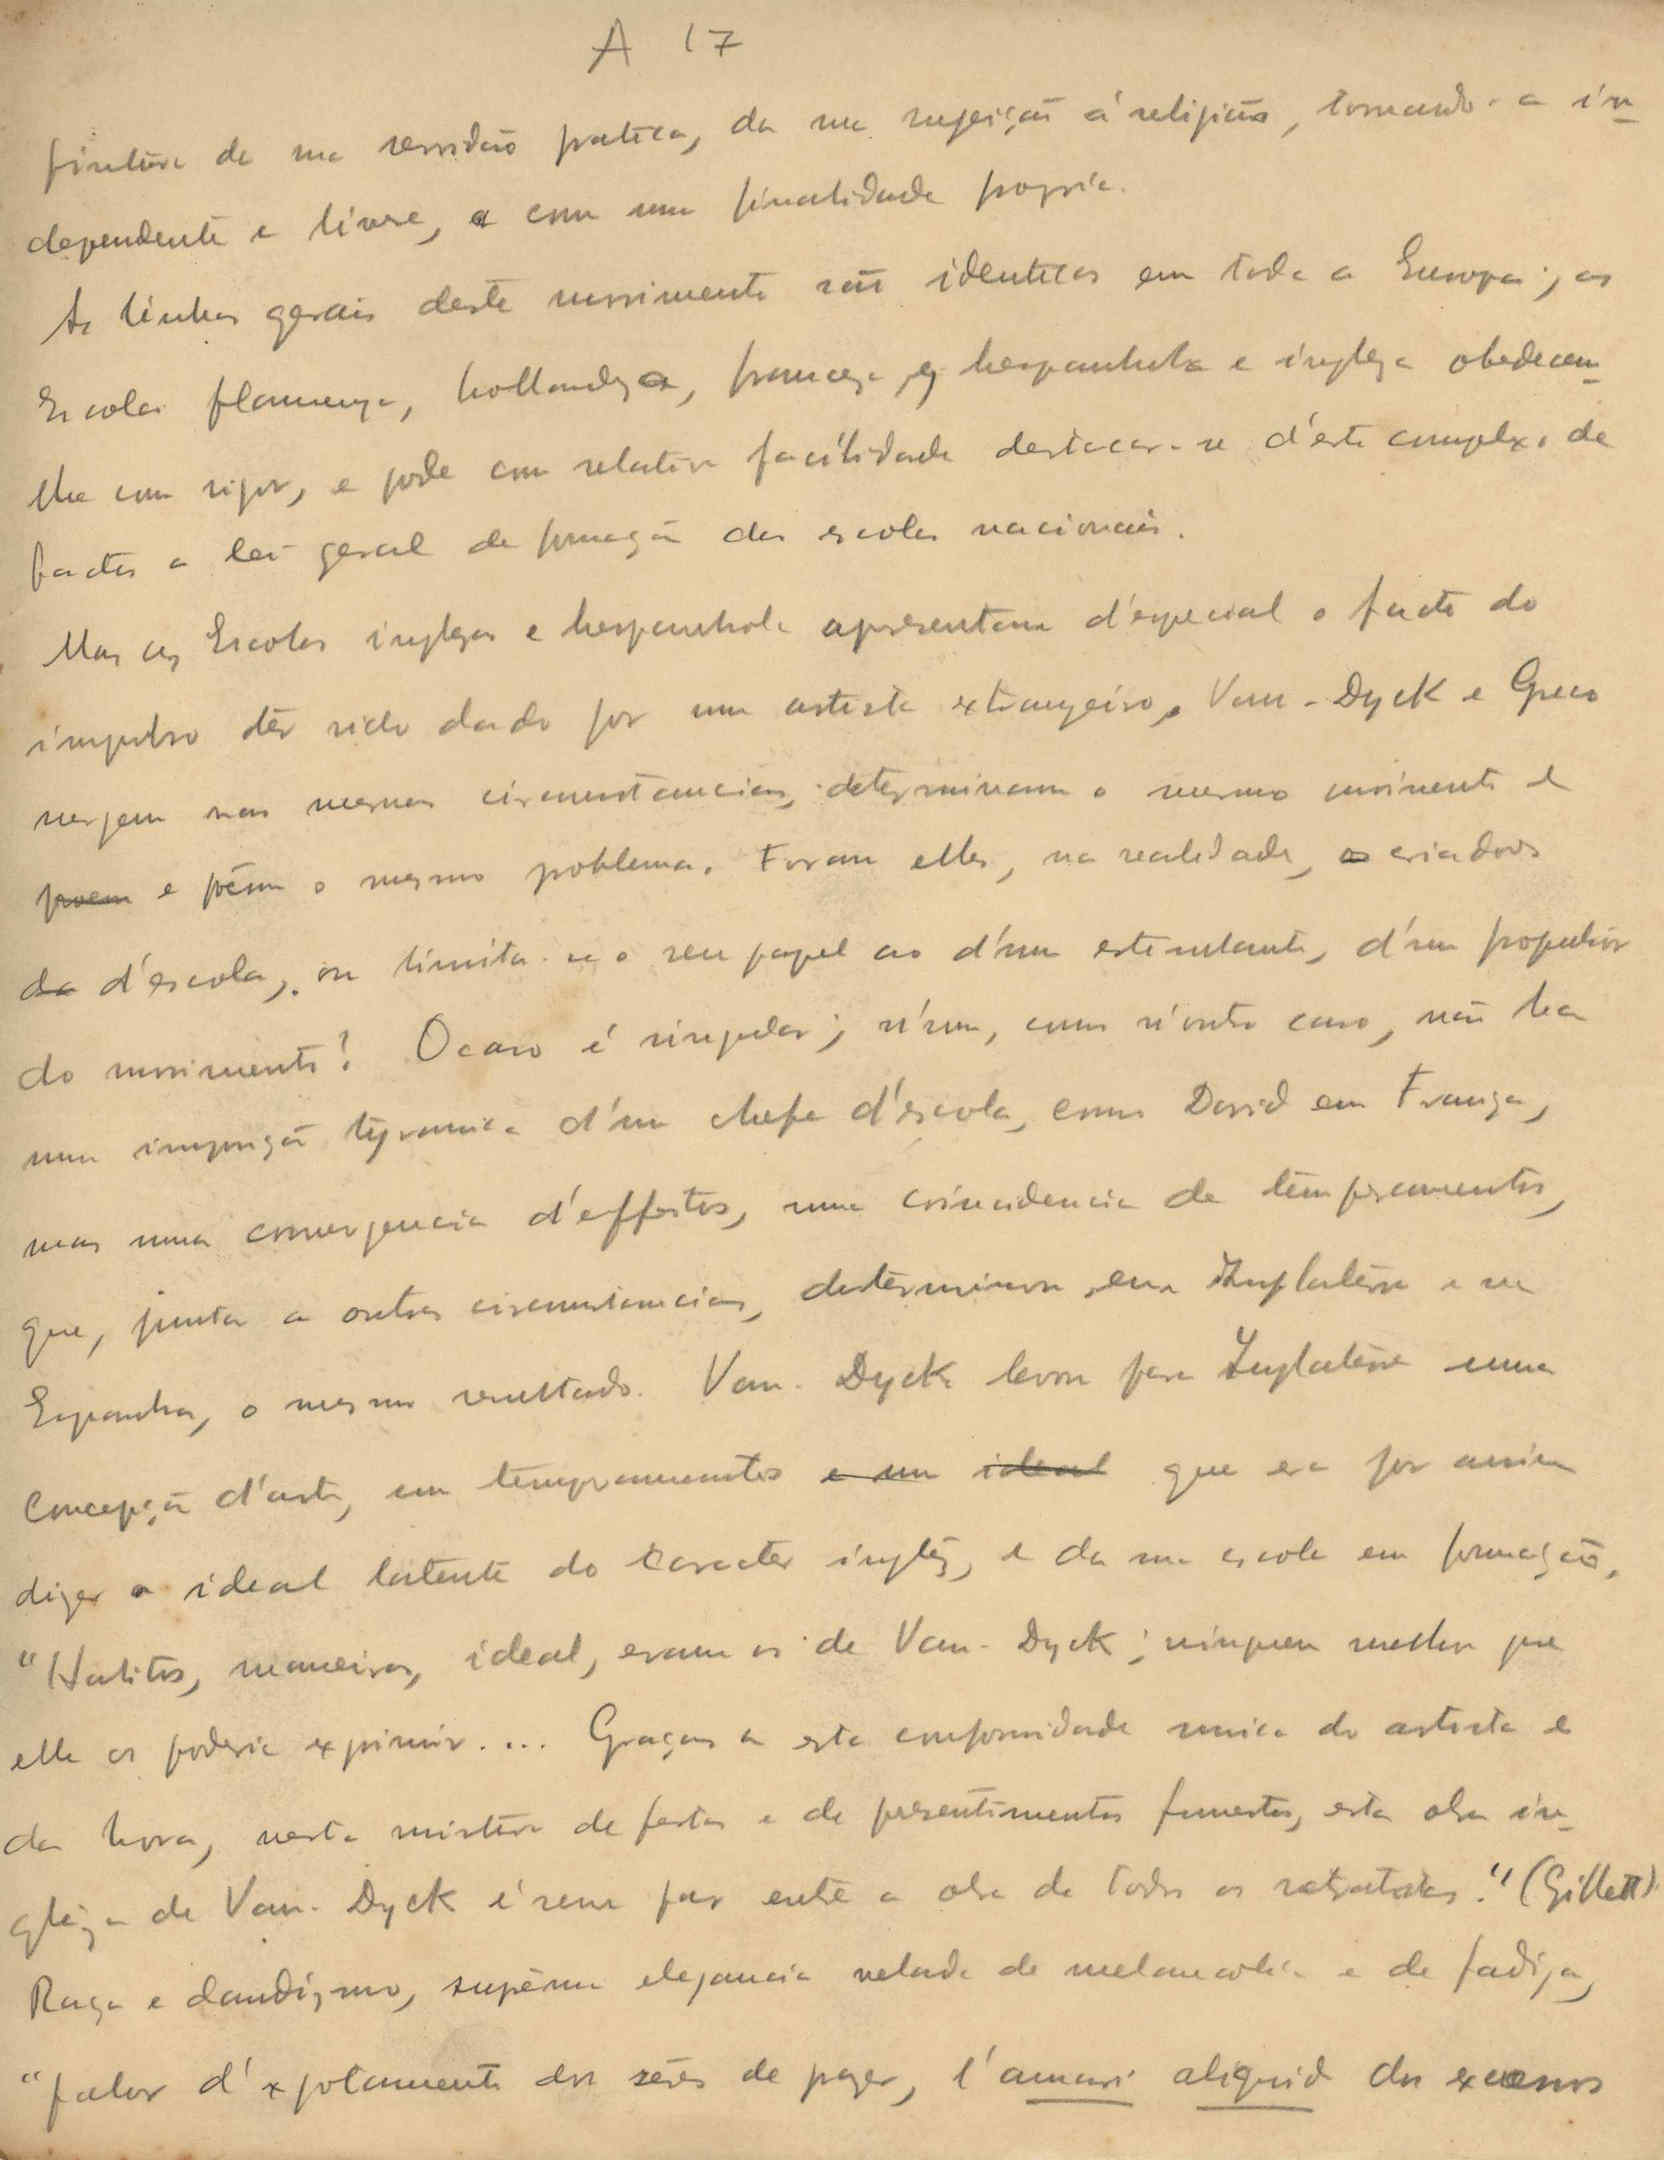 A 17
pintura da sua servidão pratica, da sua sujeição á religião, tornando-a in-
dependente e livre, e com uma finalidade propria.
As linhas gerais deste movimento são identicas em toda a Europa; as
Escolas flamenga, hollandeza, franceza, hespanhola e ingleza obedecem-
lhe com rigor, e pode com relativa facilidade destacar-se d'este complexo de
factos a lei geral de formação das escolas nacionais.
Mas as Escolas inglezas e hespanhola apresentam d'especial o facto do
impulso têr sido dado por um artista extrangeiro. Van-Dyck e Greco
surgem nas mesmas circumstancias, determinam o mesmo movimento e
poem e põem o mesmo problema. Foram elles, na realidade, os criadores
da d'escola, ou limita-se o seu papel ao d'um estimulante, d'um propulsor
do movimento? O caso é singular; n'um, como n'outro caso, não ha
uma imposição tyrannica d'um chefe d'escola, como David em França,
mas uma convergencia d'esforços, uma coincidencia de temperamentos,
que, junta a outras circumstancias, determinou, em Inglaterra e na
Espanha, o mesmo resultado. Van-Dyck levou para Inglaterra uma
concepção d'arte, um temperamento e um ideal que era por assim
dizer o ideal latente do caracter inglêz, e da sua escola em formação.
"Habitos, maneiras, ideal, eram os de Van-Dyck; ninguem melhor que
elle os poderia exprimir.... Graças a esta conformidade unica do artista e
da hora, nesta mistura de festas e de presentimentos funestos, esta obra in-
glêza de Van-Dyck é sem par entre a obra de todos os retratistas." (Gillett)
Raça e dandismo, suprêma elegancia velada de melancolia e de fadiga,
"palor d'exgotamento dos sêres de prazer, l'amari aliquid dos excessos